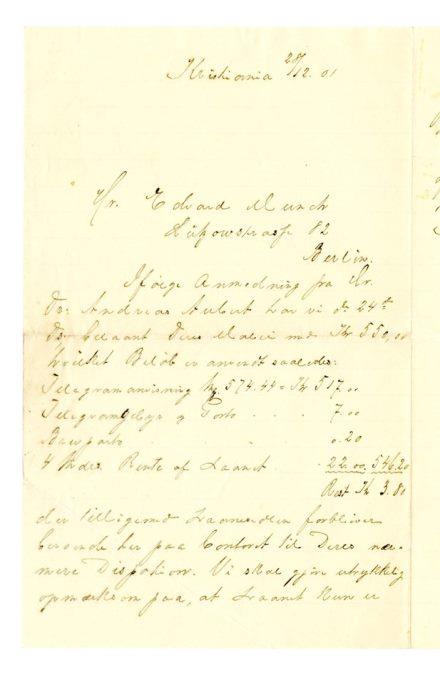 Kristiania 28/12. 01
Hr. Edvard Munch
Lützowstrasse 82
Berlin.
Ifølge Anmodning fra Hr.
Dr. Andreas Aubert har vi d. 24de
ds. belaant Deres Maleri med Kr 550,00
hvilket Beløb er anvendt saaledes:
Telegramanvisning 574.44 = Kr 517.00
Telegramgebyr og Porto . . . 7.00
0.20
4 Mdrs Rente af Laanet . 22.00 546.20
Rest Kr 3.80
der tilligemed Laanesedlen forbliver
beroende her paa Contoret til Deres nær-
mere Disposition. Vi skal gjøre udtrykkelig
opmærksom paa, at Laanet kun er